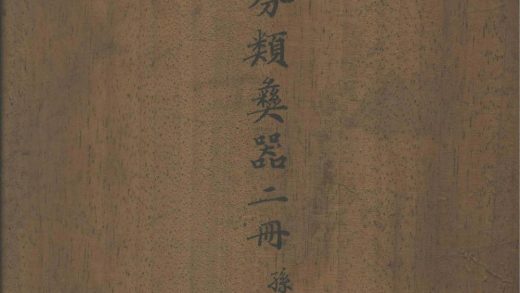 分類彝器二冊
孫